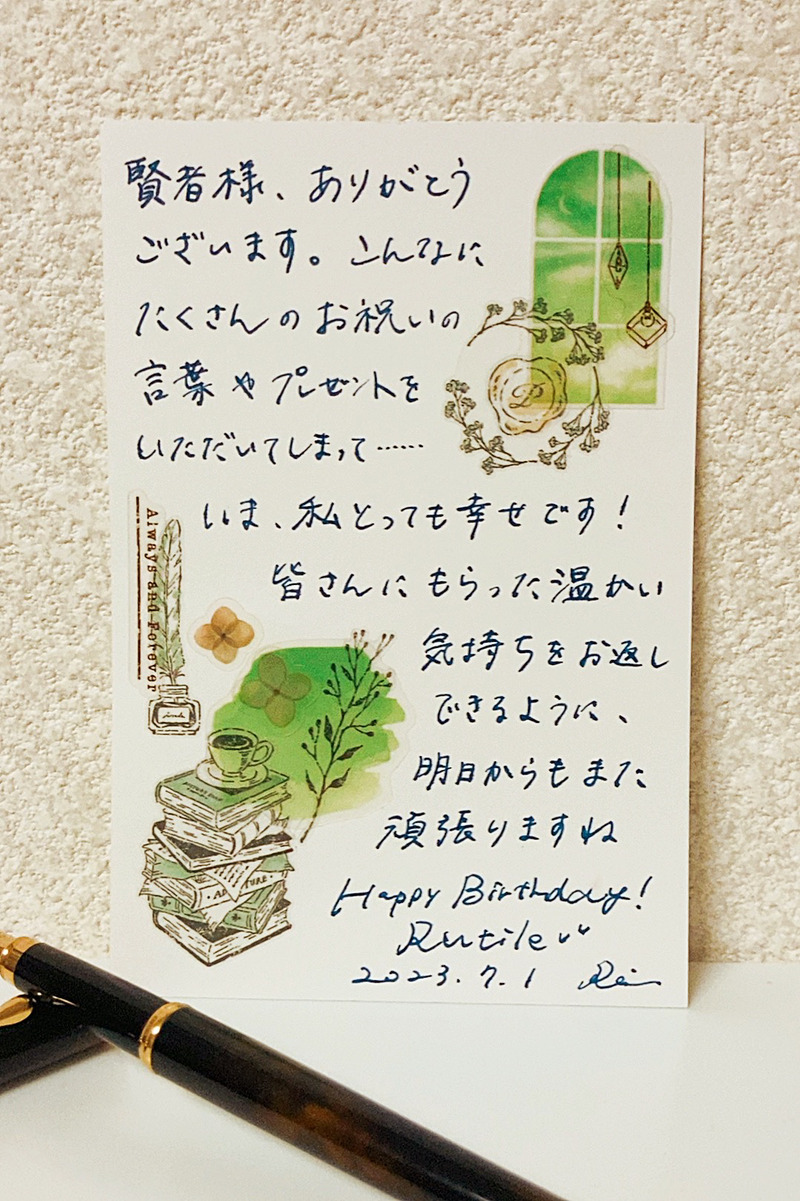 賢者様、ありがとう
ございます。こんなに
たくさんのお祝いの
言葉やプレゼントを
いただいてしまって……
いま、私とっても幸せです!
皆さんにもらった温かい
気持ちをお返し
できるように、
明日からもまた
頑張りますね
Happy Birthday!
Rutile
2023.7.1
Always and Forever
P